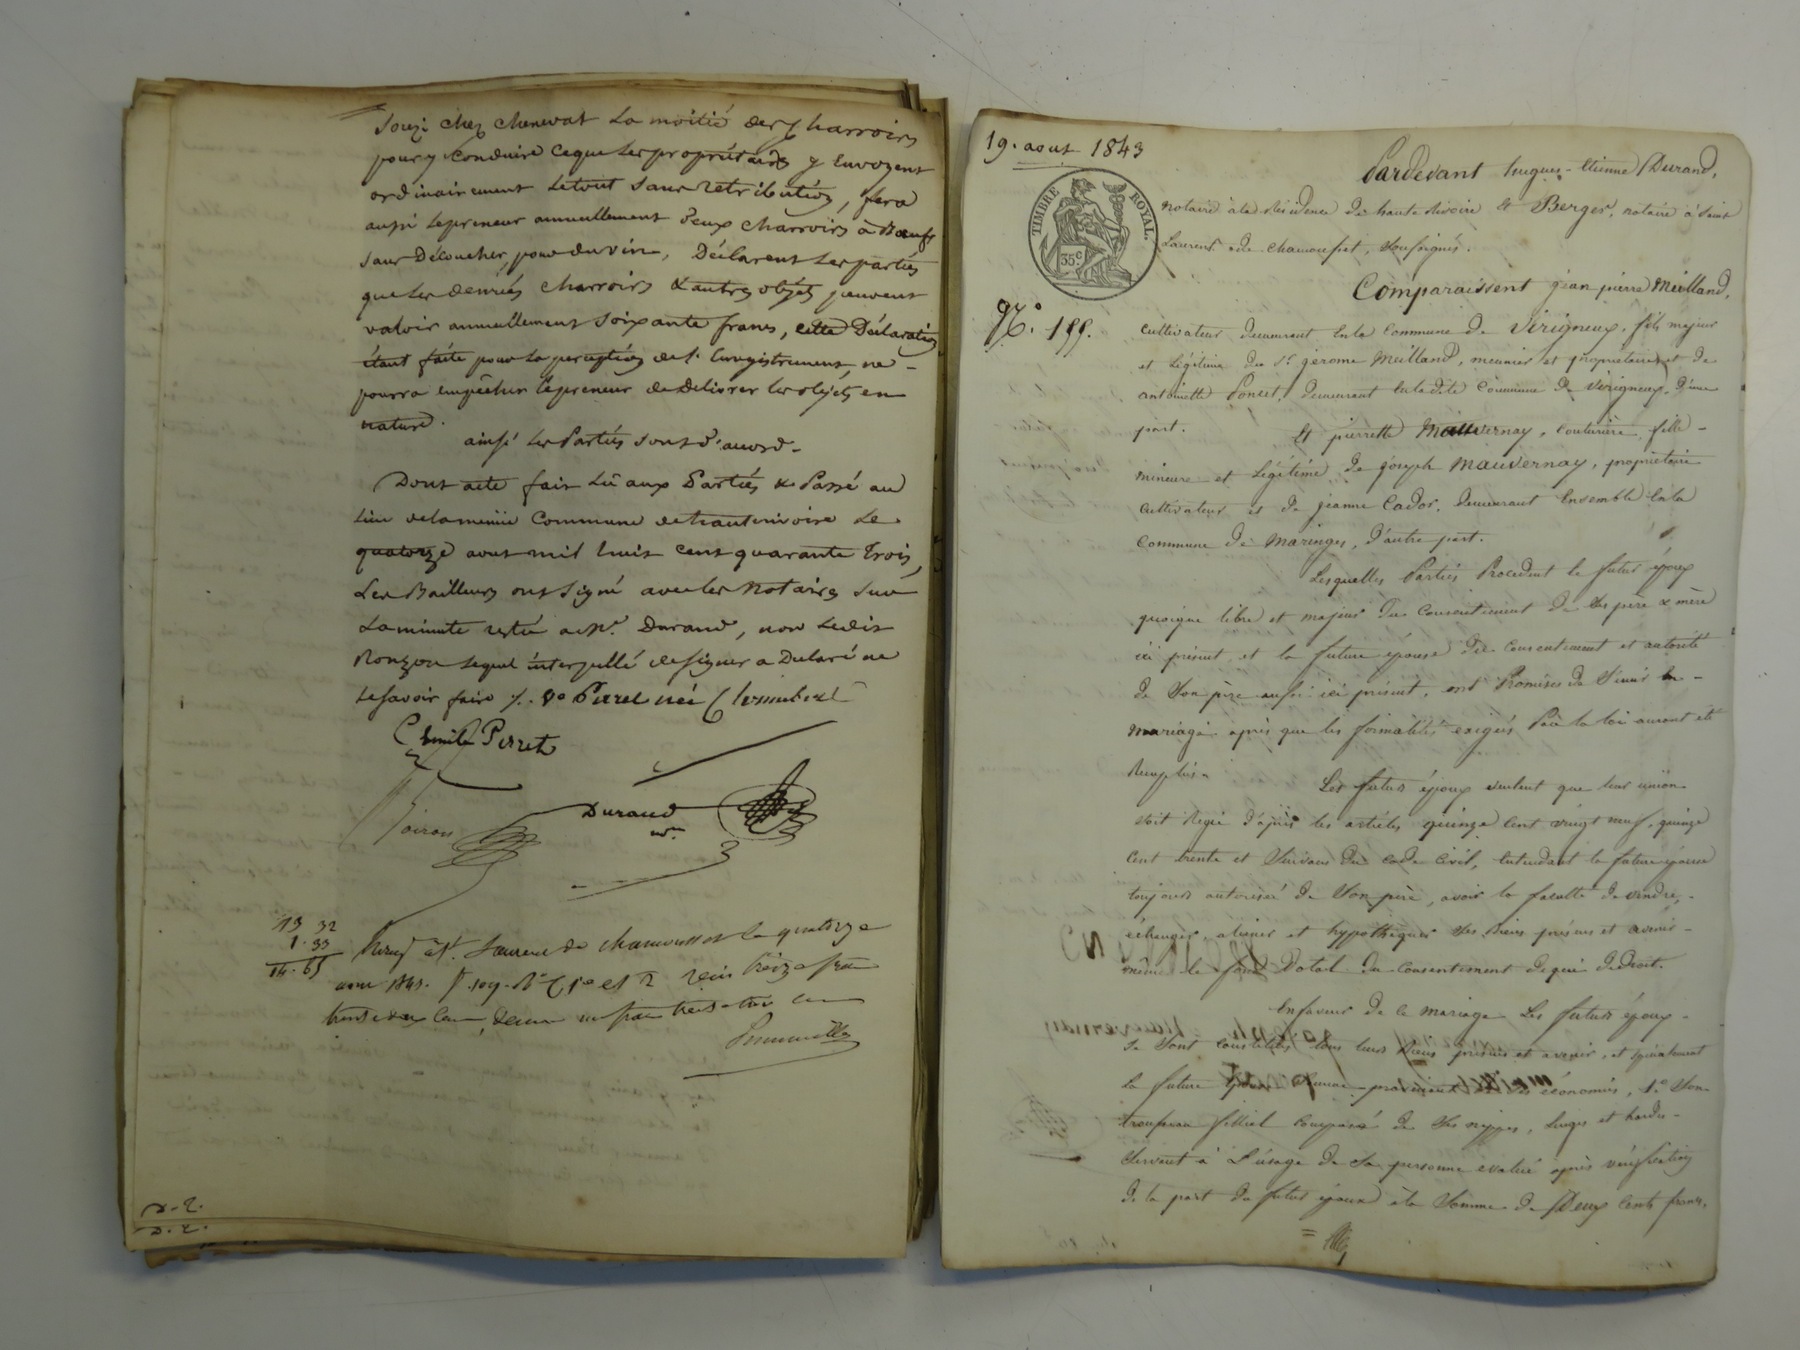 Souzi chez chenevat La moitié des charroirs
pour y Conduire ceque les propriétaires y Envoyent
ordinairement letout sans retribution, fera
aussi le preneur annuellement deux charroirs à Bœufs
sans Découcher pour du vin, Déclarent les parties
que les denrées charroirs & autres objets peuvent
valoir annuellement soixante francs, cette Déclaration
étant faite pour la perception de l'Enregistrement, ne
pourra empêcher le preneur de Délivrer les objets en
nature.
ainsi les Parties sont d'accord.
Dont acte fait Lû aux Parties & Passé au
Lieu de la commune de hauterivoire Le
quatorze aout mil huit cent quarante trois,
Les Bailleurs ont signé avec les Notaires sur
La minute restée a Me. Durand, non ledit
Ronzon lequel interpellé de signer a Déclaré ne
le savoir faire ve Perret née
Emile Perret
Durand
nre
13 32
1. 33
14. 65
St. Laurent de chamousset le quatorze
aout 1843. f. 109. Ro C 1re et 2 reçu treize francs
trente deux cen, Decime un franc trente trois cen
D. 2.
D. 2.
19. aout 1843
TIMBRE ROYAL.
35c
No. 199.
Pardevant hugues-Etienne Durand,
notaire à la Résidence de haute Rivoire & Berger, notaire à Saint
Laurent de chamousset, soussignés.
Comparaissent jean pierre Meilland,
cultivateur demeurant en la Commune de Virigneux, fils majeur
et Légitime de Sr. jerome Meilland, meunier et propriétaire et de
antoinette Poncet, demeurant en la dite Commune de Virigneux, d'une
part.
Et pierrette Mauvernay, couturière, fille
mineure et Légitime de joseph Mauvernay, propriétaire
cultivateur et de jeanne Cador, demeurant Ensemble en la
Commune de Maringes, d'autre part.
Lesquelles Parties Procedent le futur époux
quoique libre et majeur Du Consentement de ses père & mère
ici présent, et la future épouse du consentement et autorité
de son père aussi ici présent, ont Promises de s'unir en
mariage après que les formalités exigées Par la loi auront été
Remplies.
Les futurs époux veulent que leur union
soit Régie d'après les articles quinze cent vingt neuf, quinze
cent trente et suivans du code civil, entendant la future épouse
toujours autorisée de son père, avoir la faculté de vendre,
échanger, aliener et hypothéquer ses Biens présens et avenir
même le fond Dotal du consentement de qui de droit.
En faveur de ce mariage Les futurs époux
se sont constitués tous leurs Biens présens et avenir, et spécialement
la future épouse comme provenant de ses économies, 1o son
trousseau filial composé de ses nippes, linges et hardes
servant à l'usage de sa personne evalué après vérification
de la part du futur époux à la somme de Deux cents francs,